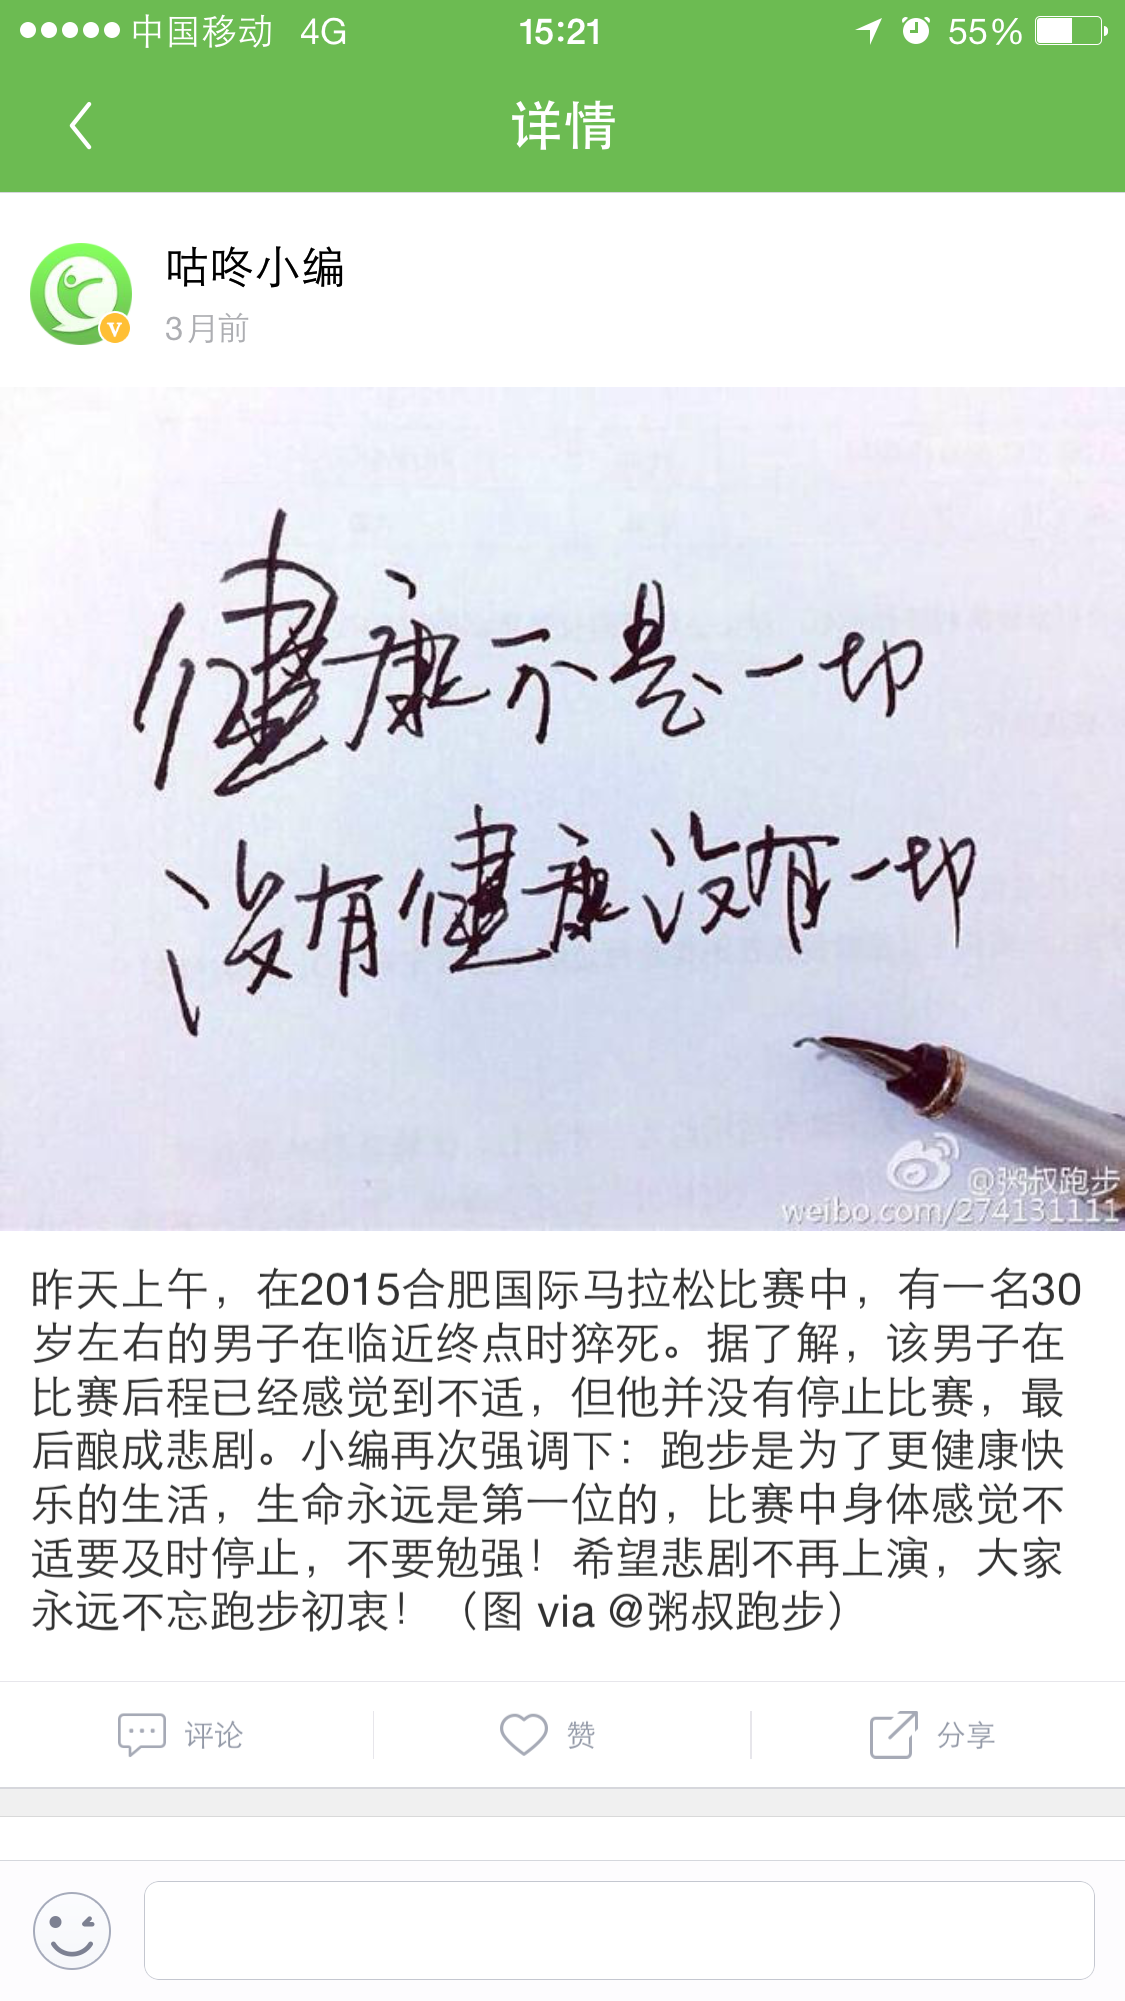 中国移动 4G 15:21 55%
详情
咕咚小编
V
3月前
健康不是一切
没有健康没有一切
@粥叔跑步
weibo.com/274131111
昨天上午，在2015合肥国际马拉松比赛中，有一名30
岁左右的男子在临近终点时猝死。据了解，该男子在
比赛后程已经感觉到不适，但他并没有停止比赛，最
后酿成悲剧。小编再次强调下：跑步是为了更健康快
乐的生活，生命永远是第一位的，比赛中身体感觉不
适要及时停止，不要勉强！希望悲剧不再上演，大家
永远不忘跑步初衷！（图 via @粥叔跑步）
评论 赞 分享